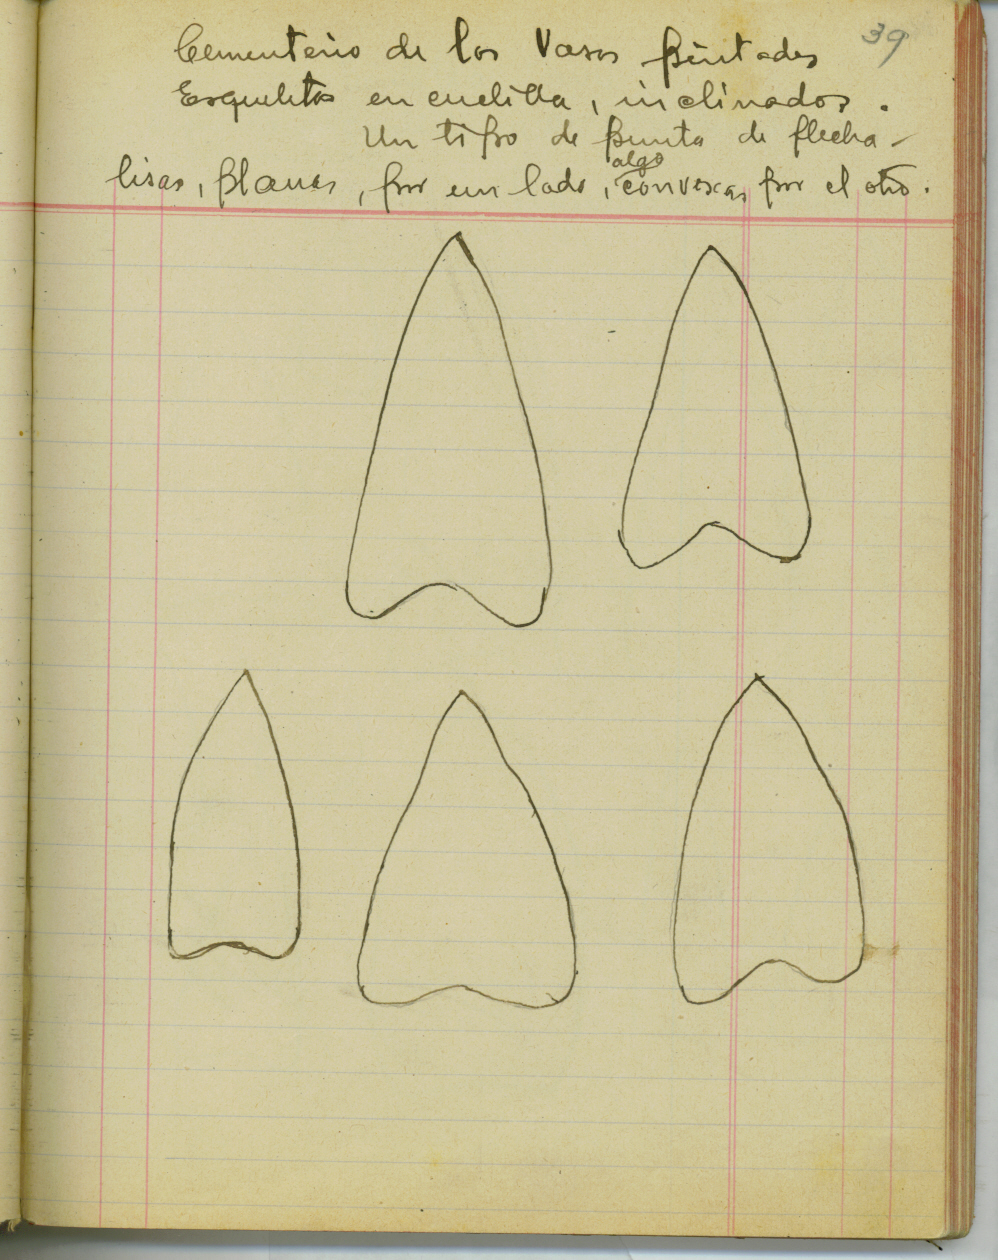 39
Cementerio de los Vasos pintados
Esqueletos en cuclilla, inclinados.
Un tipo de punta de flecha -
lisas, planas, por un lado, algo convexas por el otro.